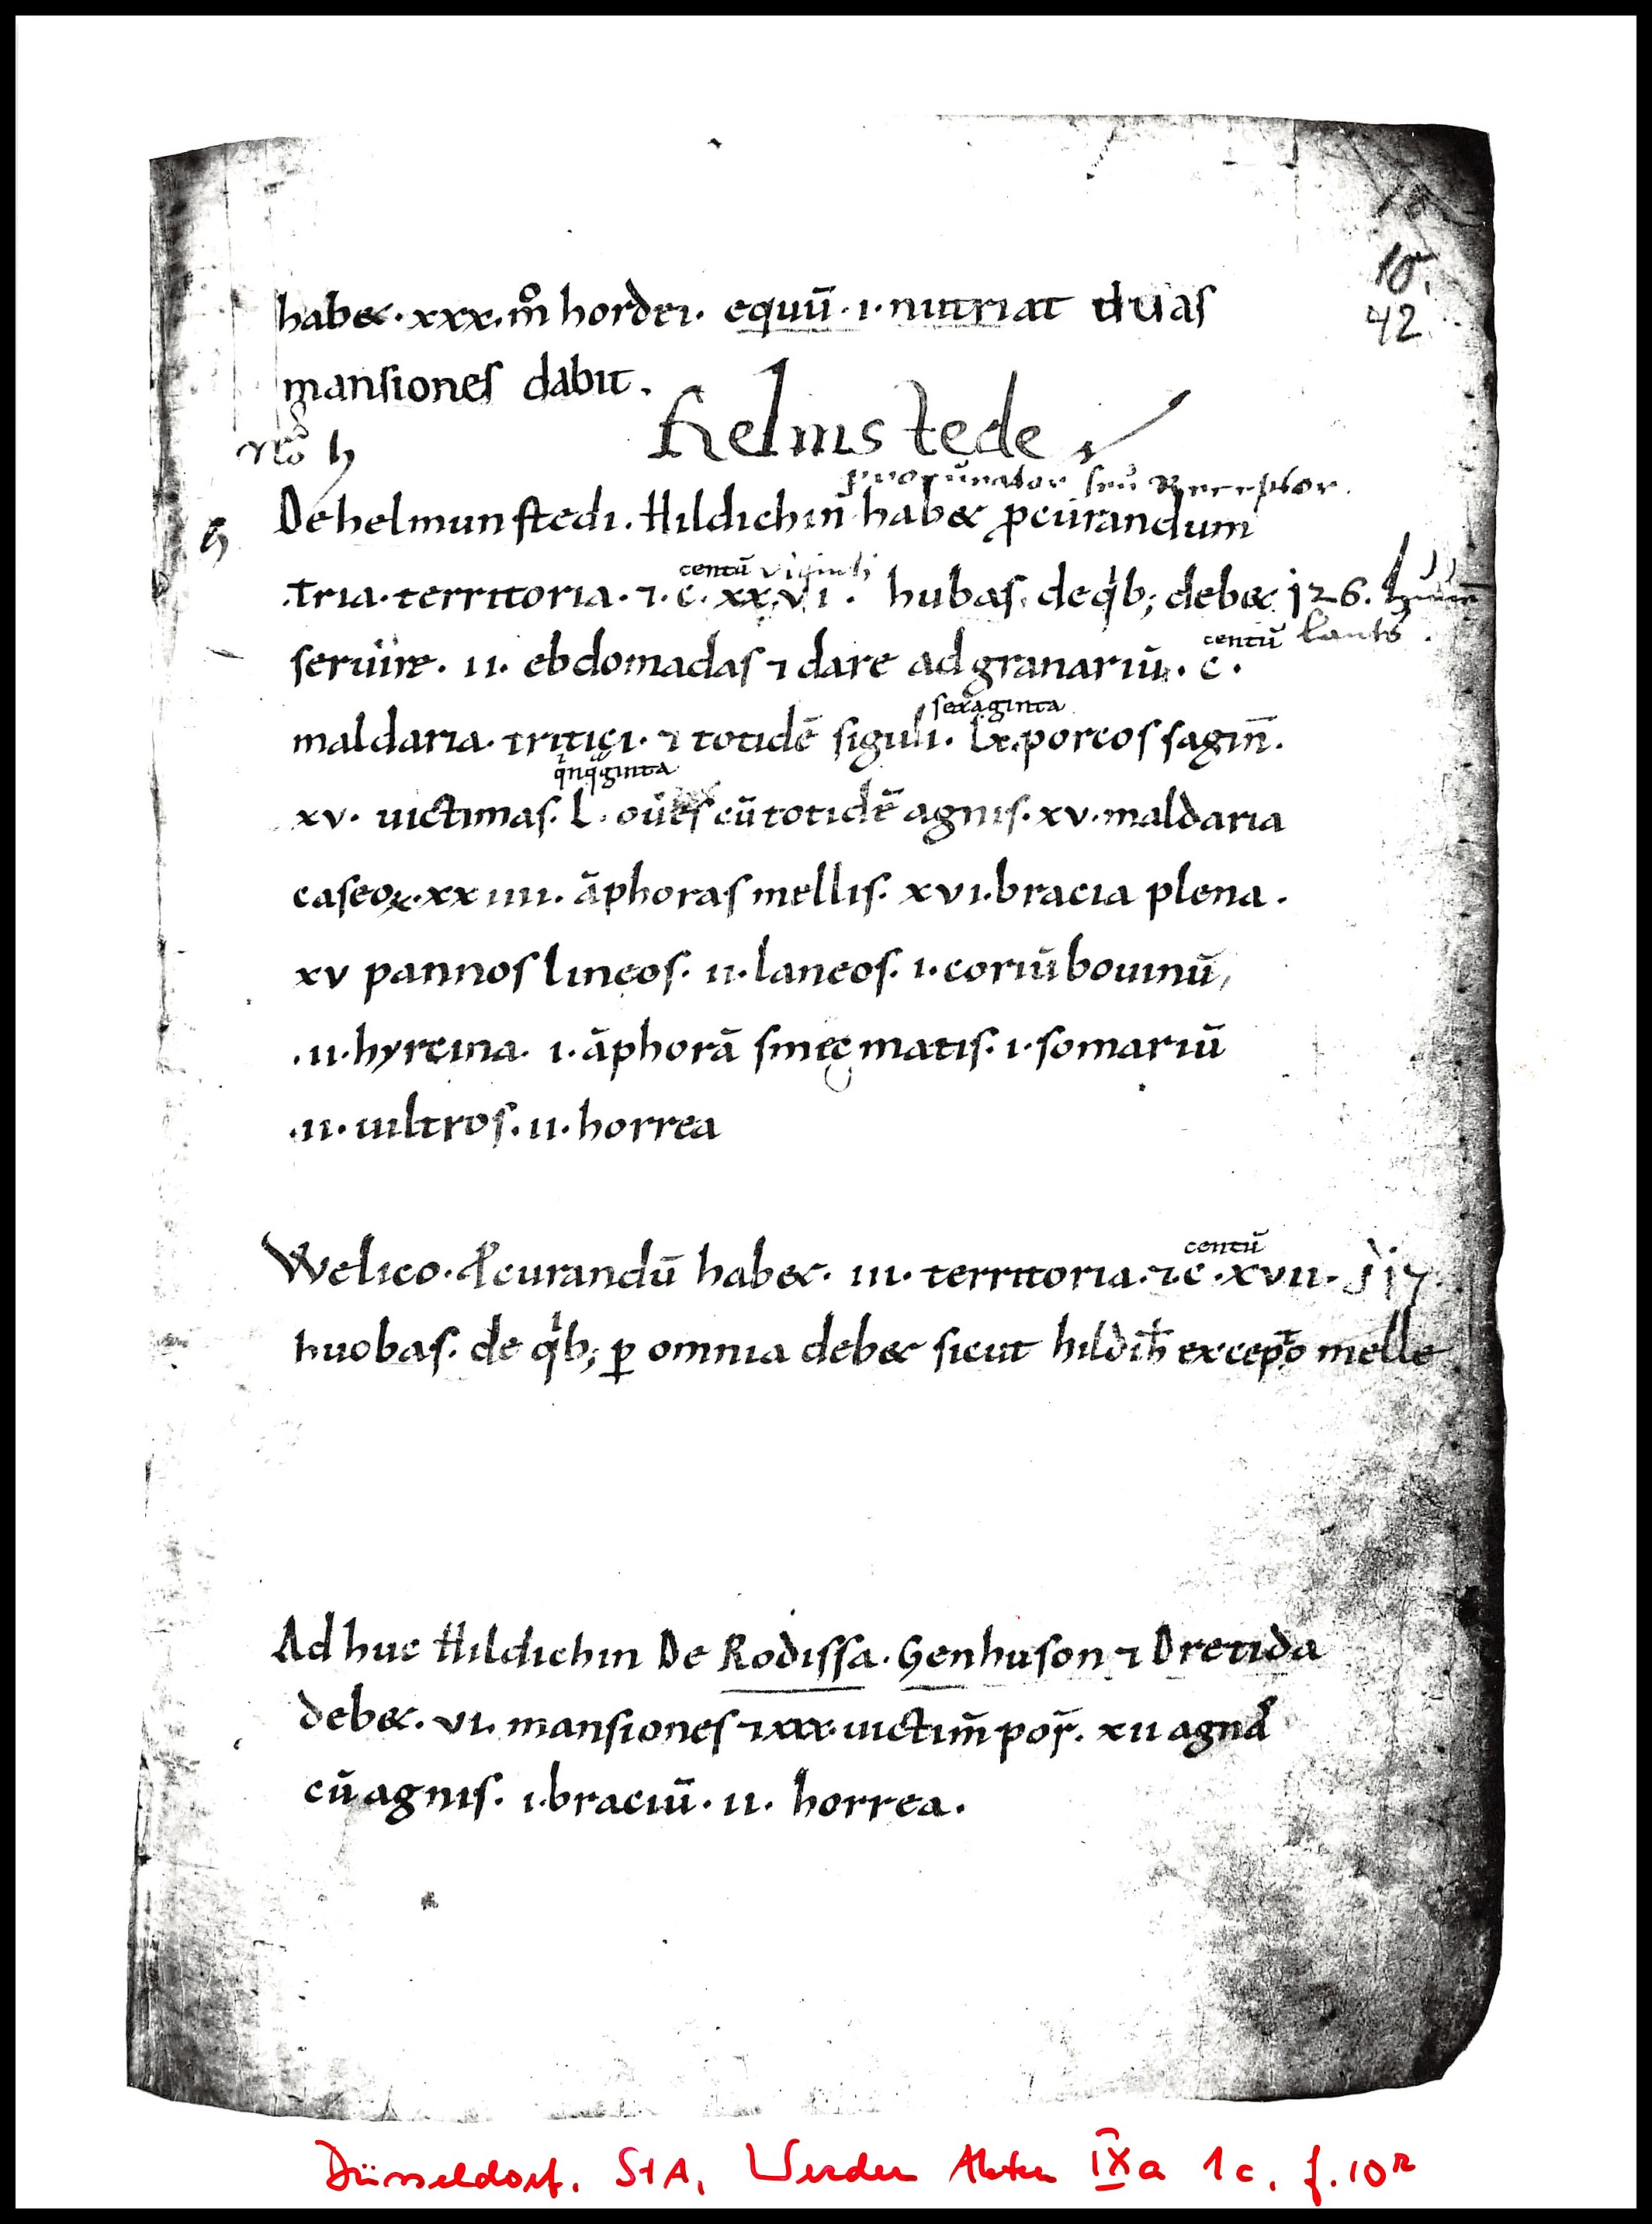 10.
42
hab&. xxx. m̊ hordei. equū. i. nutriat duas
mansiones dabit.
Helmstede
procurator seu Receptor.
De helmunstedi. Hildichin̄ hab& ꝓcurandum
centū viginti
tria. territoria. ⁊. c. xx. vi. hubas. de qͥb; deb& 126.
centū lants.
seruire. ii. ebdomadas ⁊ dare ad granariū. c.
sexaginta
maldaria. tritici. ⁊ totidē siguli. lx. porcos sagin̄.
qͥnqͣginta
xv. uictimas. l. oues cū totidē agnis. xv. maldaria
caseoꝝ. xxiiii. āphoras mellis. xvi. bracia plena.
xv pannos lineos. ii. laneos. i. coriū bouinū,
.ii. hyrcina. i. āphorā smegmatis. i. somariū
.ii. uiltros. ii. horrea
centū
Welico. ꝓcurandū hab&. iii. territoria. ⁊. c. xvii. 117.
huobas. de qͥb; ꝑ omnia deb& sicut hildiħ excepto melle
Ad huc Hildichin De Rodissa. Genhuson ⁊ Dretida
deb&. vi. mansiones ⁊ xxx uictim̄ por̄. xii agnas
cū agnis. i. braciū. ii. horrea.
Düsseldorf, StA, Werden Akten IXa 1c, f. 10r